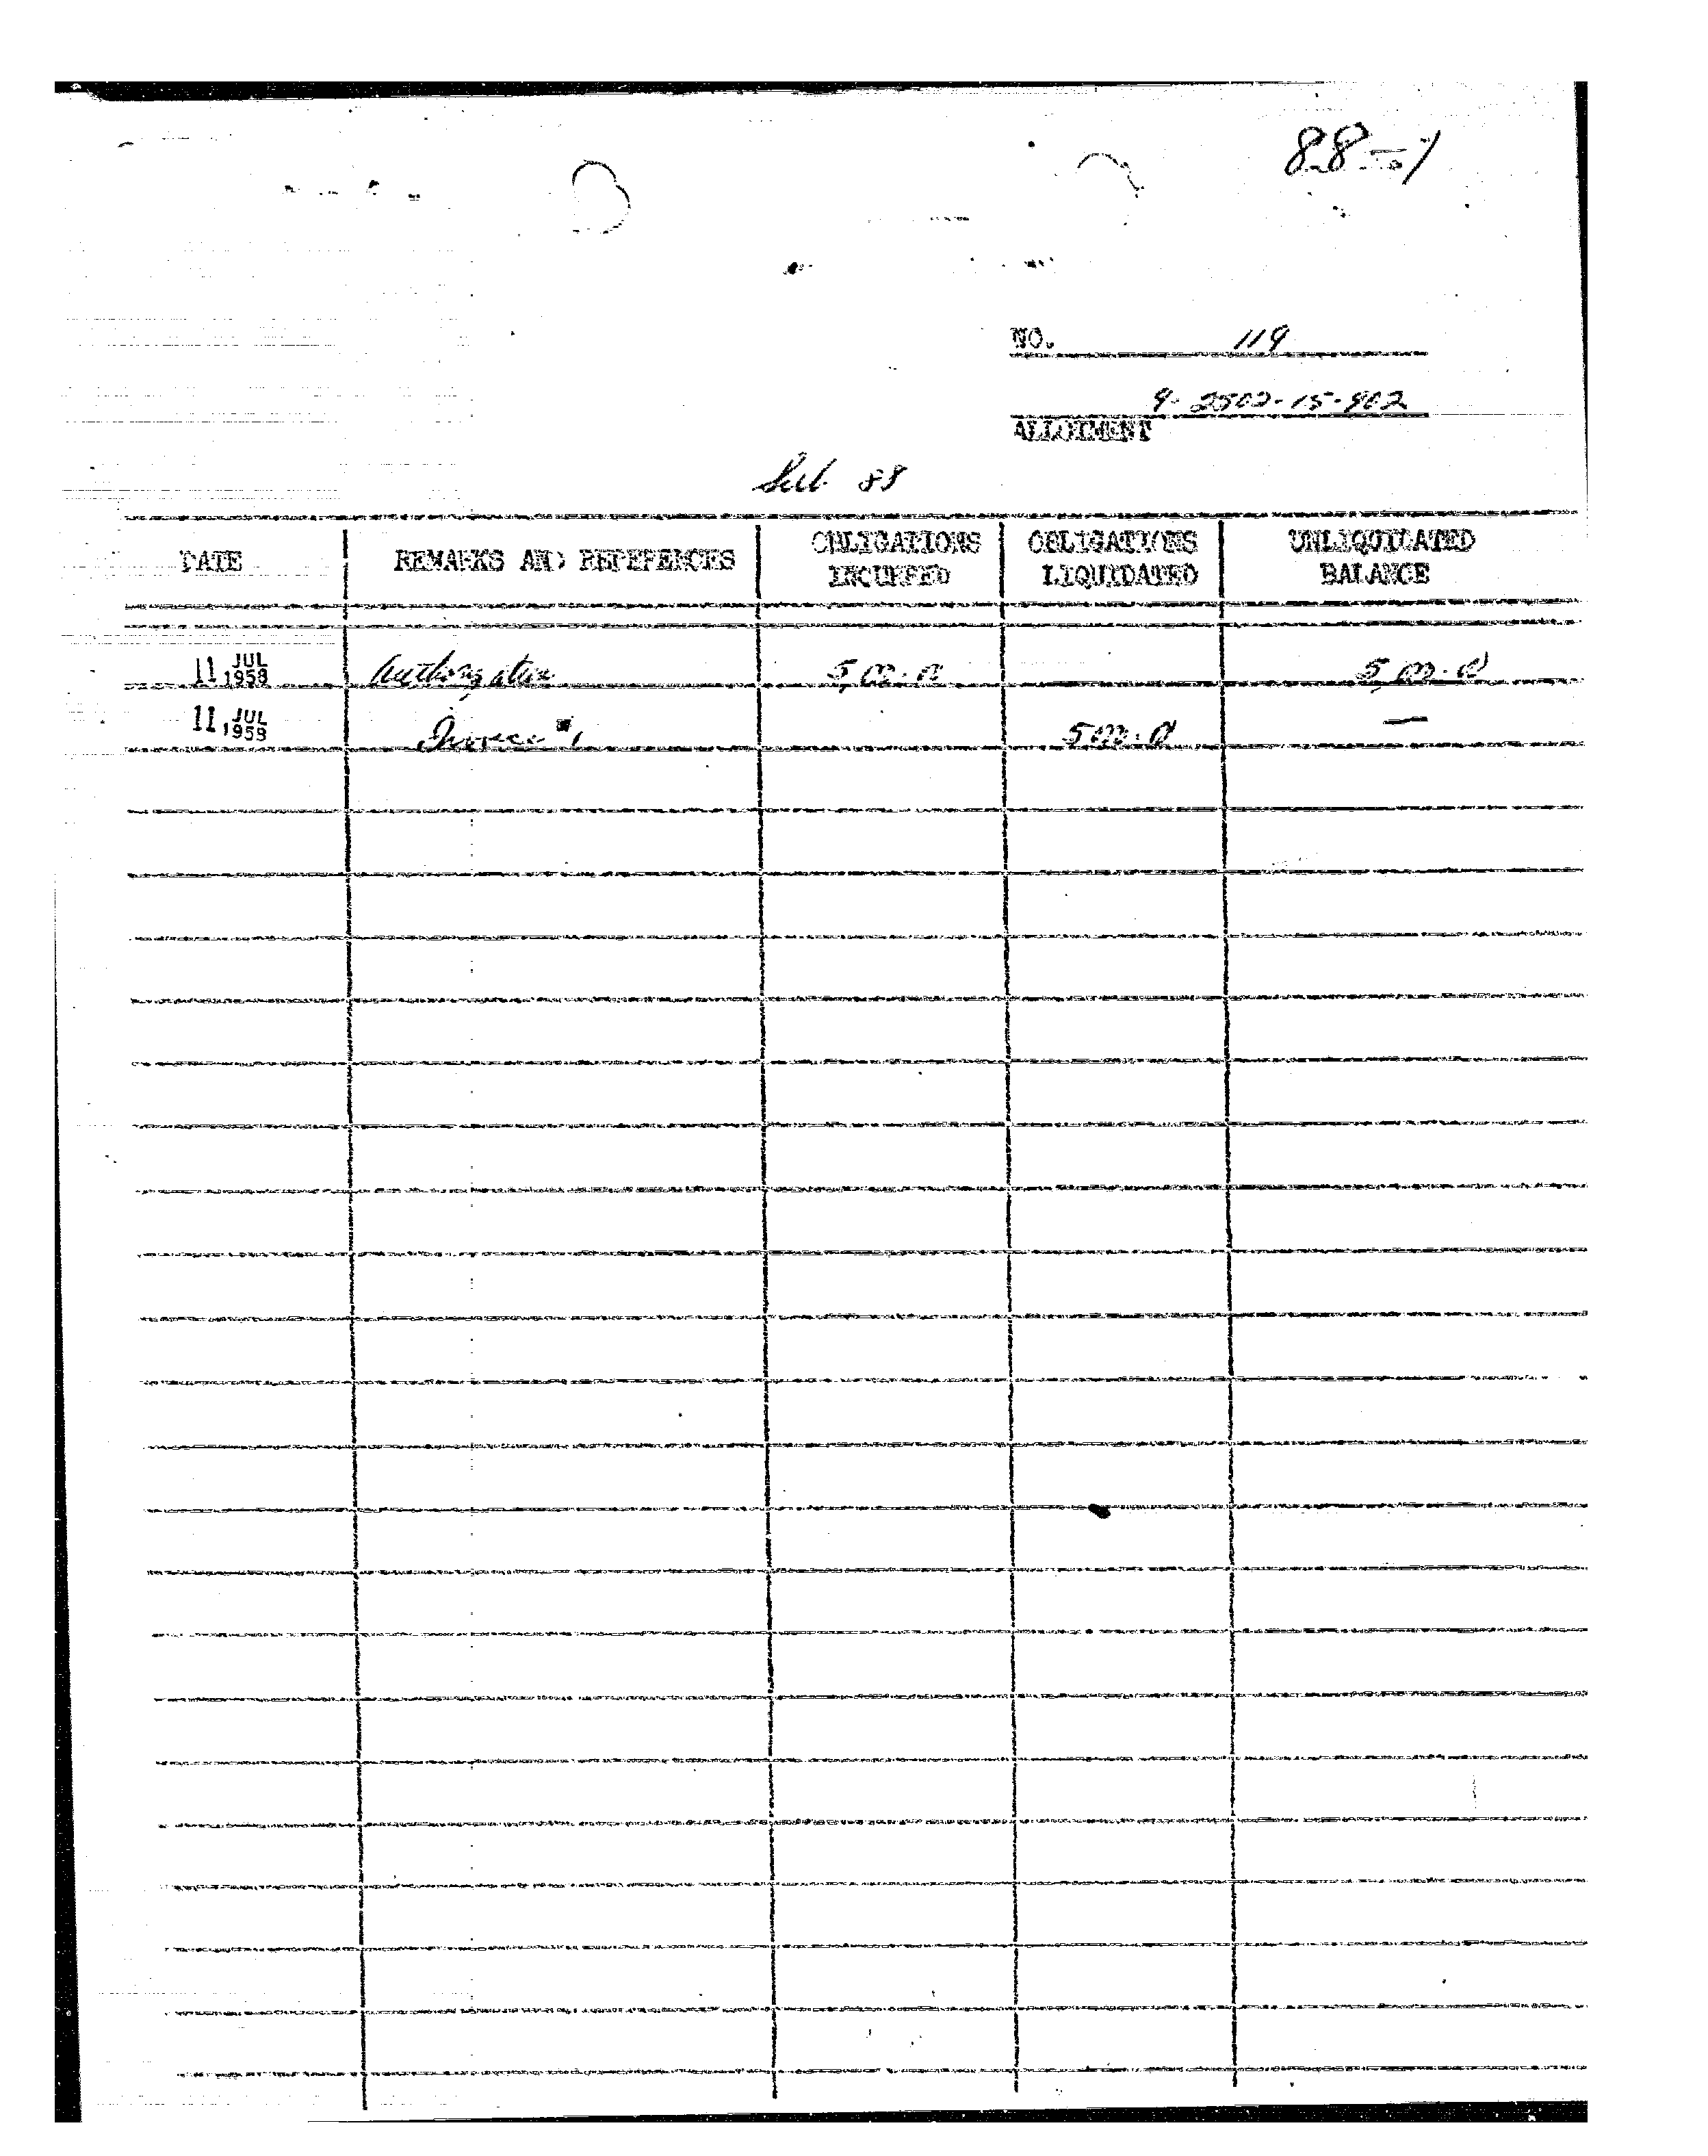 88-1
NO. 119
9-2502-15-902
ALLOTMENT
Sub 88
DATE REMARKS AND REFERENCES OBLIGATIONS INCURRED OBLIGATIONS LIQUIDATED UNLIQUIDATED BALANCE
11 JUL 1958 Authorization
11 JUL 1958 Invoice #1 —